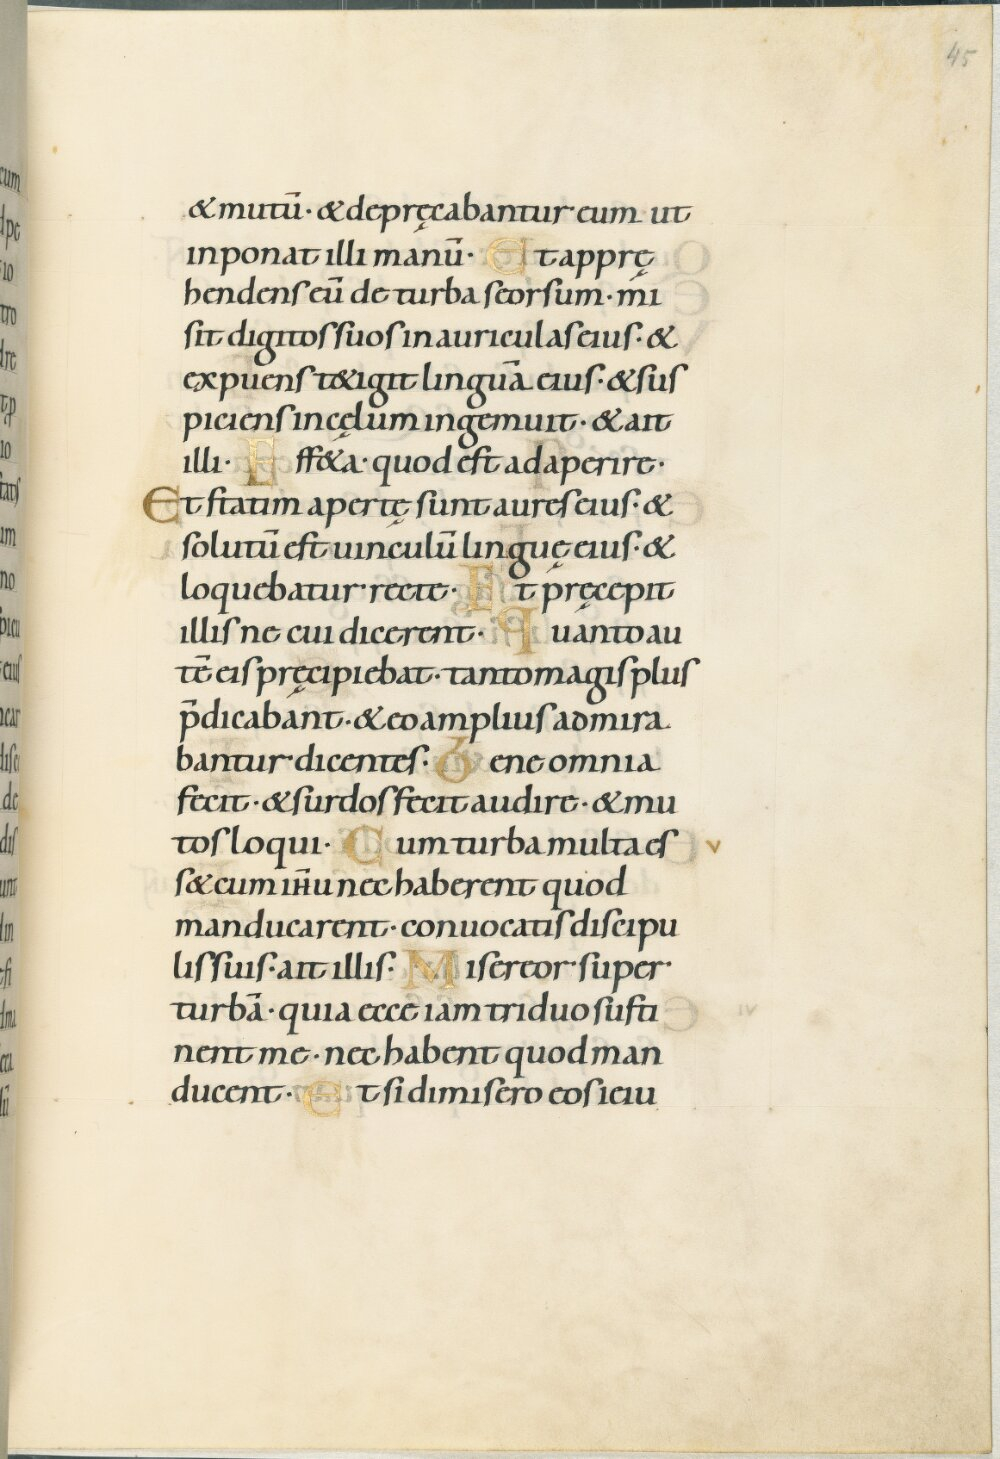 45
& mutū· & depręcabantur eum ut
inponat illi manū· Et apprę
hendens eū de turba seorsum· mi
sit digitos suos in auriculas eius· &
expuens t&igit linguā eius· & sus
piciens in cęlum ingemuit· & ait
illi· Eff&a· quod est adaperire·
Et statim apertę sunt aures eius· &
solutū est uinculū linguę eius· &
loquebatur recte· Et pręcepit
illis ne cui dicerent· Quanto au
tē eis pręcipiebat· tanto magis plus
p̄dicabant· & eo amplius admira
bantur dicentes· Bene omnia
fecit· & surdos fecit audire· & mu
tos loqui· Cum turba multa es v
s& cum iħu nec haberent quod
manducarent· conuocatis discipu
lis suis· ait illis· Misereor super
turbā· quia ecce iam triduo susti
nent me· nec habent quod man
ducent· Et si dimisero eos ieiu